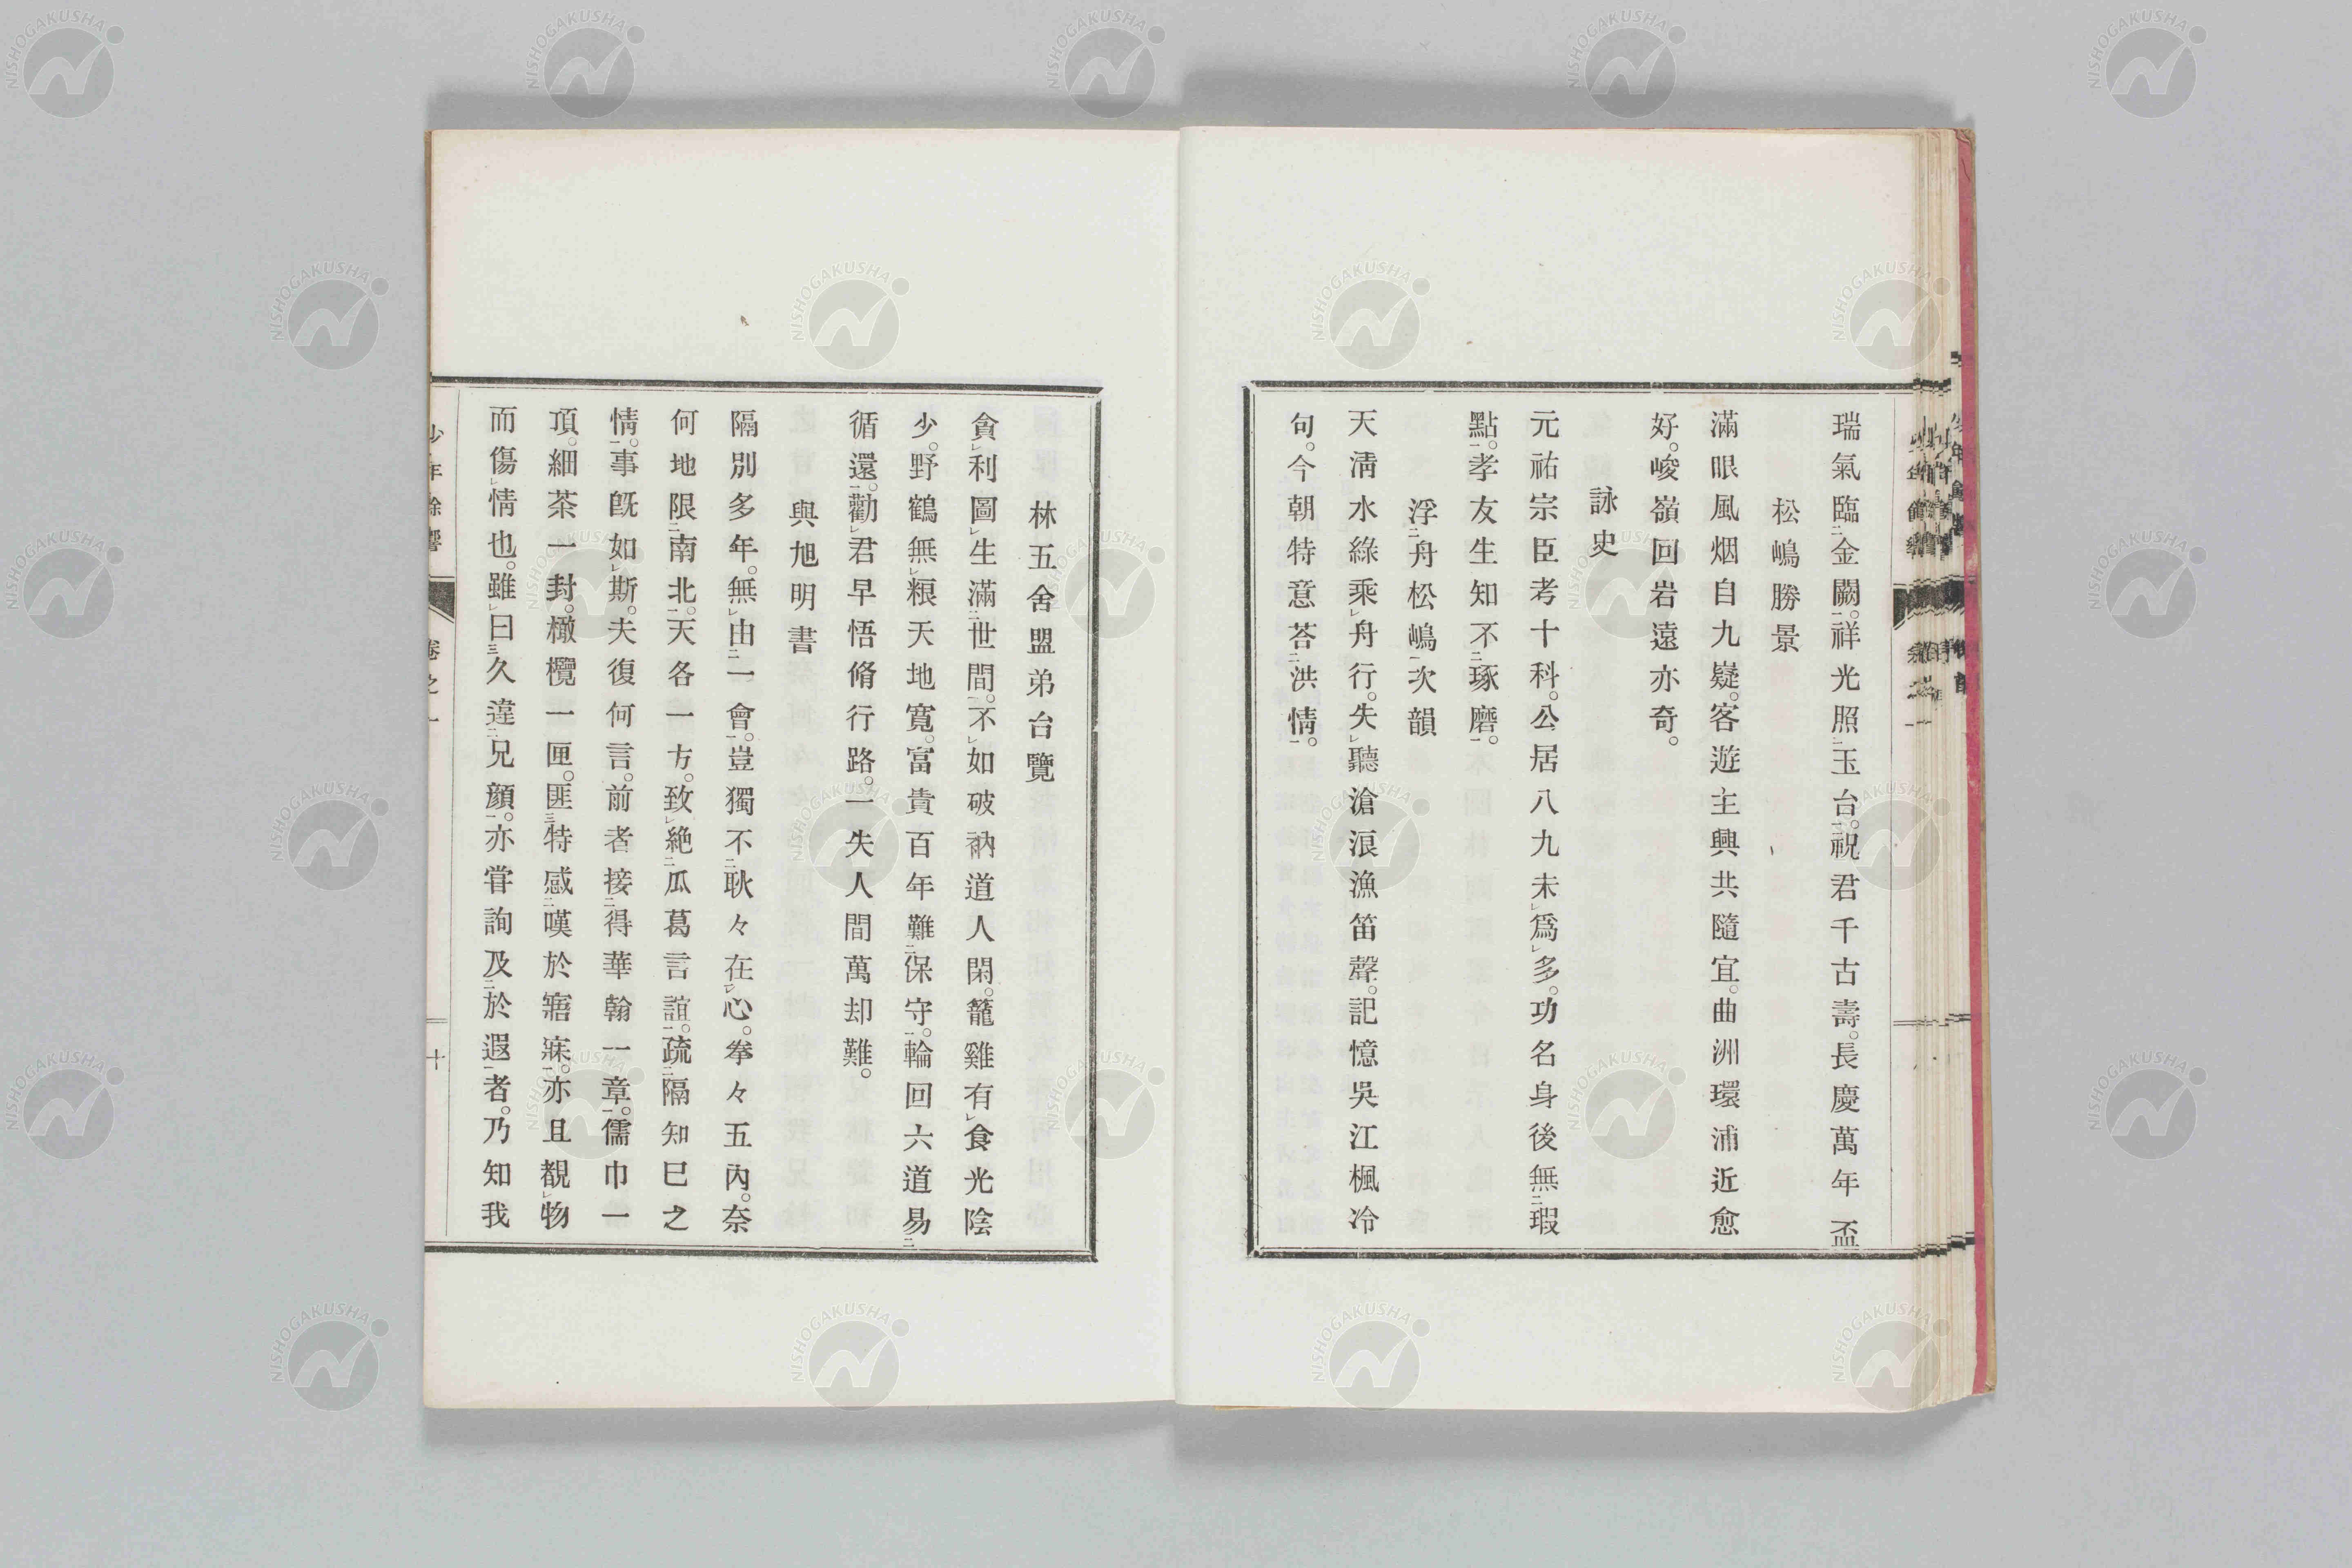 瑞氣臨二金闕一。祥光照二玉台一。祝君千古壽。長慶萬年盃
松嶋勝景
滿眼風烟自九嶷。客遊主興共隨宜。曲洲環浦近愈
好。峻嶺回岩遠亦奇。
詠史
元祐宗臣考十科。公居八九未レ爲レ多。功名身後無二瑕
點一。孝友生知不二琢磨一。
浮二舟松嶋一次韻
天淸水綠乘レ舟行。失レ聽滄浪漁笛聲。記憶吳江楓冷
句。今朝特意荅二洪情一。
林五舍盟弟台覽
貪レ利圖レ生滿二世間一。不レ如破衲道人閑。籠雞有レ食光陰
少。野鶴無レ粮天地寬。富貴百年難二保守一。輪回六道易二
循還一。勸レ君早悟脩行路。一失人間萬却難。
與旭明書
隔別多年。無レ由二一會一。豈獨不二耿々在一レ心。拳々五內。奈
何地限二南北一。天各一方。致レ絶二瓜葛言誼一。疏二隔知巳之
情一。事既如レ斯。夫復何言。前者接二得華翰一章一。儒巾一
頂。細茶一封。橄欖一匣。匪三特感二嘆於寤寐一。亦且覩レ物
而傷レ情也。雖レ曰三久違二兄顏一。亦甞詢及二於遐一者。乃知我
少年餘響
卷之一
十
NISHOGAKUSHA